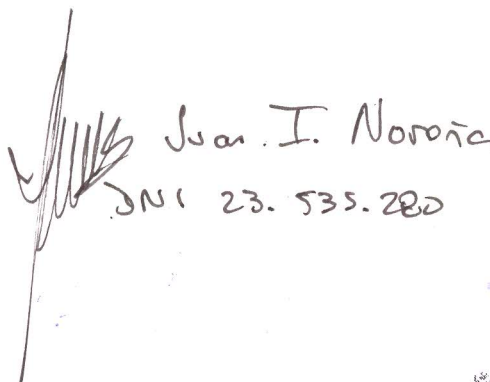 Juan. I. Noroña
DNI 23.535.280